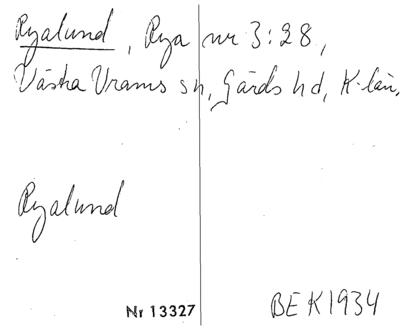 Ryalund, Rya nr 3:28,
Västra Vrams sn, Gärds hd, K-län,
Ryalund
Nr 13327
BEK1934